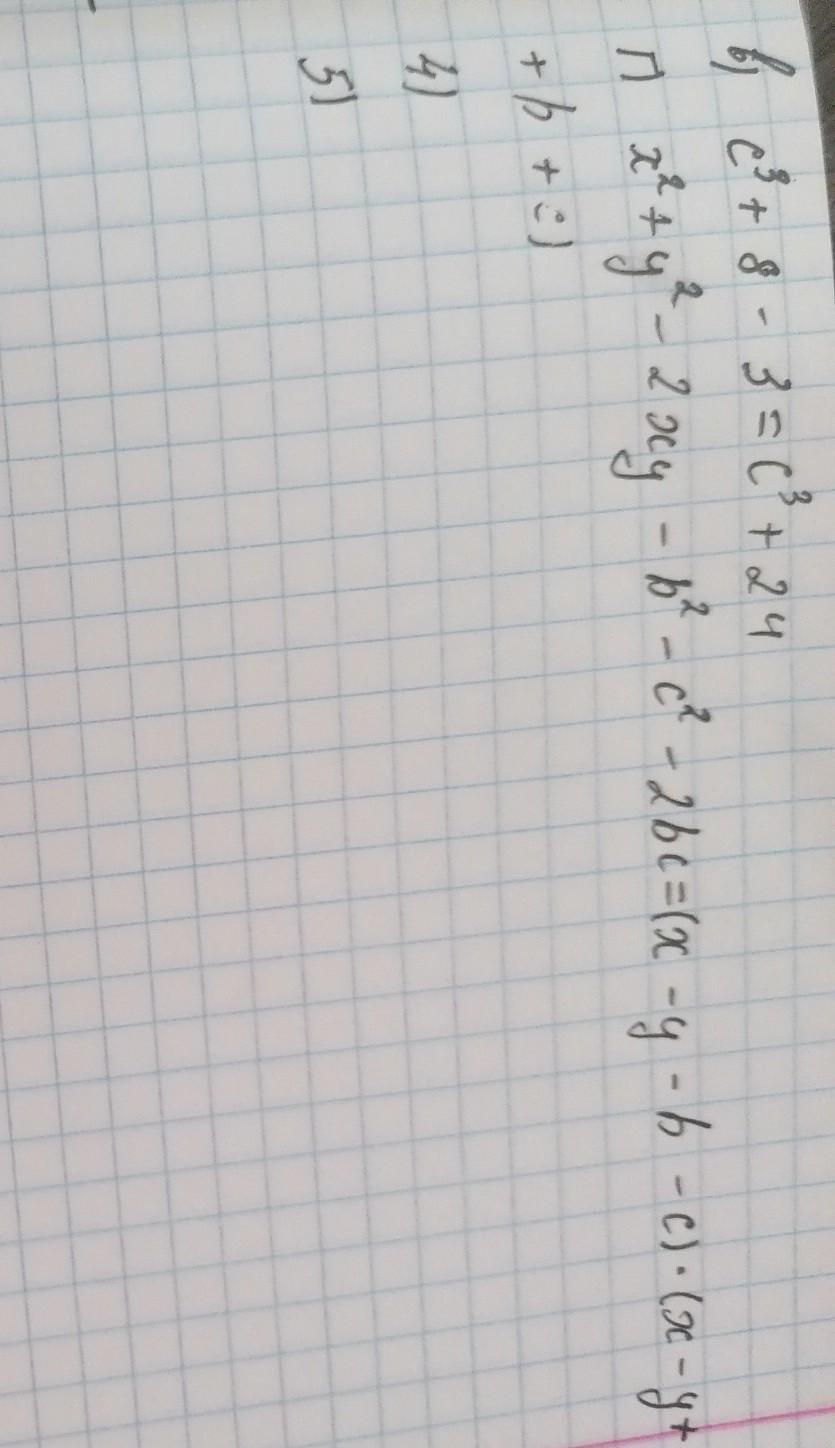 в) c³ + 8 - 3 = c³ + 24
г) x² + y² - 2xy - b² - c² - 2bc = (x - y - b - c) · (x - y +
+ b + c)
4)
5)